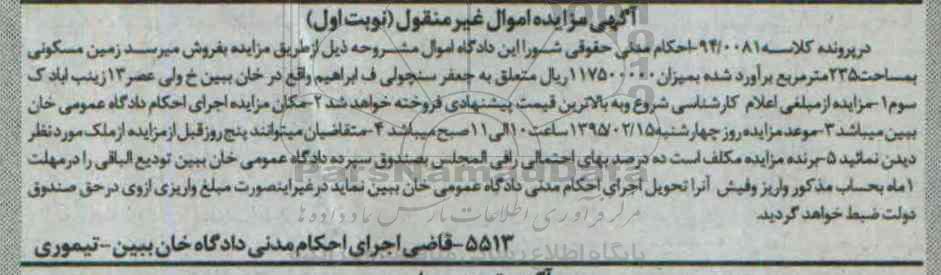 آگهی مزایده اموال غیر منقول (نوبت اول)
درپرونده کلاسه ۹۴/۰۰۸۱-احکام مدنی حقوقی شورا این دادگاه اموال مشروحه ذیل ازطریق مزایده بفروش میرسد زمین مسکونی
بمساحت۲۳۵مترمربع برآورد شده بمیزان۱۱۷۵۰۰۰۰۰ریال متعلق به جعفر سنچولی ف ابراهیم واقع در خان ببین خ ولی عصر۱۳زینب اباد ک
سوم۱-مزایده ازمبلغی اعلام کارشناسی شروع وبه بالاترین قیمت پیشنهادی فروخته خواهد شد۲-مکان مزایده اجرای احکام دادگاه عمومی خان
ببین میباشد۳-موعدمزایده روز چهارشنبه۱۳۹۵/۰۲/۱۵ساعت۱۰الی۱۱صبح میباشد ۴-متقاضیان میتوانند پنج روزقبل ازمزایده ازملک موردنظر
دیدن نمائید ۵-برنده مزایده مکلف است ده درصد بهای احتمالی رافی المجلس بصندوق سپرده دادگاه عمومی خان ببین تودیع الباقی را درمهلت
۱ماه بحساب مذکور واریز وفیش آنرا تحویل اجرای احکام مدنی دادگاه عمومی خان ببین نماید درغیراینصورت مبلغ واریزی ازوی درحق صندوق
دولت ضبط خواهد گردید.
۵۵۱۳-قاضی اجرای احکام مدنی دادگاه خان ببین-تیموری
ParsNamadData
مرکز فرآوری اطلاعات پارس نماد داده ها